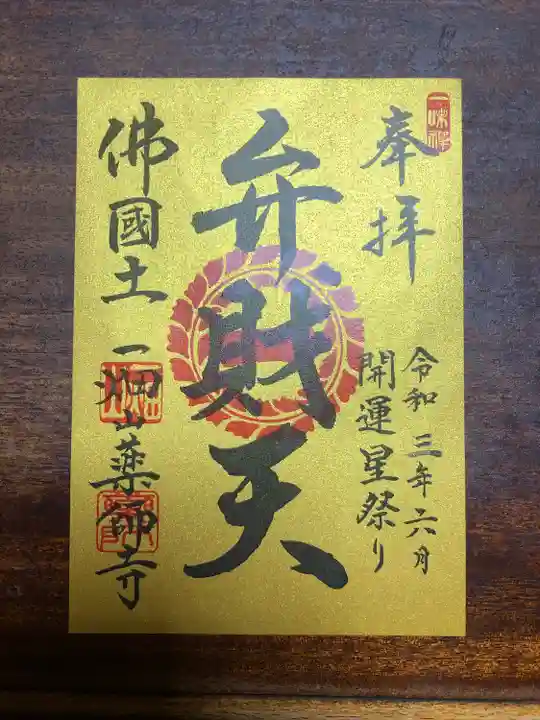 一味禅
奉拝
令和三年六月
開運星祭り
弁財天
佛國土
一畑山薬師寺